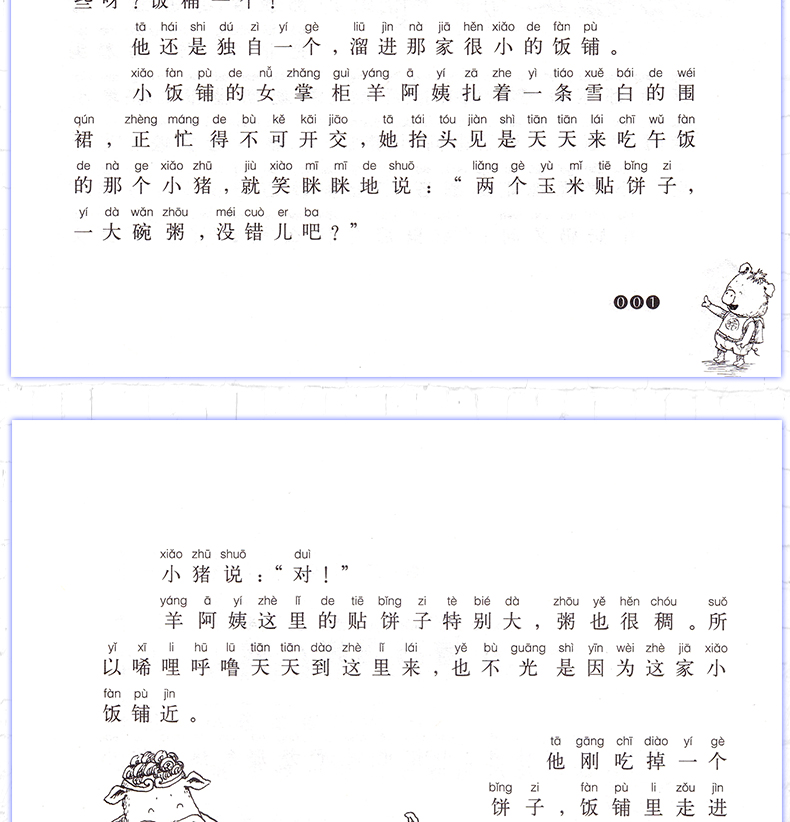 些呀？饭桶一个！
tā hái shi dú zì yí gè liū jìn nà jiā hěn xiǎo de fàn pù
他还是独自一个，溜进那家很小的饭铺。
xiǎo fàn pù de nǚ zhǎng guì yáng ā yí zā zhe yì tiáo xuě bái de wéi
小饭铺的女掌柜羊阿姨扎着一条雪白的围
qún zhèng máng de bù kě kāi jiāo tā tái tóu jiàn shì tiān tiān lái chī wǔ fàn
裙，正忙得不可开交，她抬头见是天天来吃午饭
de nà ge xiǎo zhū jiù xiào mī mī de shuō liǎng gè yù mǐ tiē bǐng zi
的那个小猪，就笑眯眯地说：“两个玉米贴饼子，
yí dà wǎn zhōu méi cuò er ba
一大碗粥，没错儿吧？”
001
xiǎo zhū shuō duì
小猪说：“对！”
yáng ā yí zhè lǐ de tiē bǐng zi tè bié dà zhōu yě hěn chóu suǒ
羊阿姨这里的贴饼子特别大，粥也很稠。所
yǐ xī li hū lū tiān tiān dào zhè lǐ lái yě bù guāng shì yīn wèi zhè jiā xiǎo
以唏哩呼噜天天到这里来，也不光是因为这家小
fàn pù jìn
饭铺近。
tā gāng chī diào yí gè
他刚吃掉一个
bǐng zi fàn pù li zǒu jìn
饼子，饭铺里走进